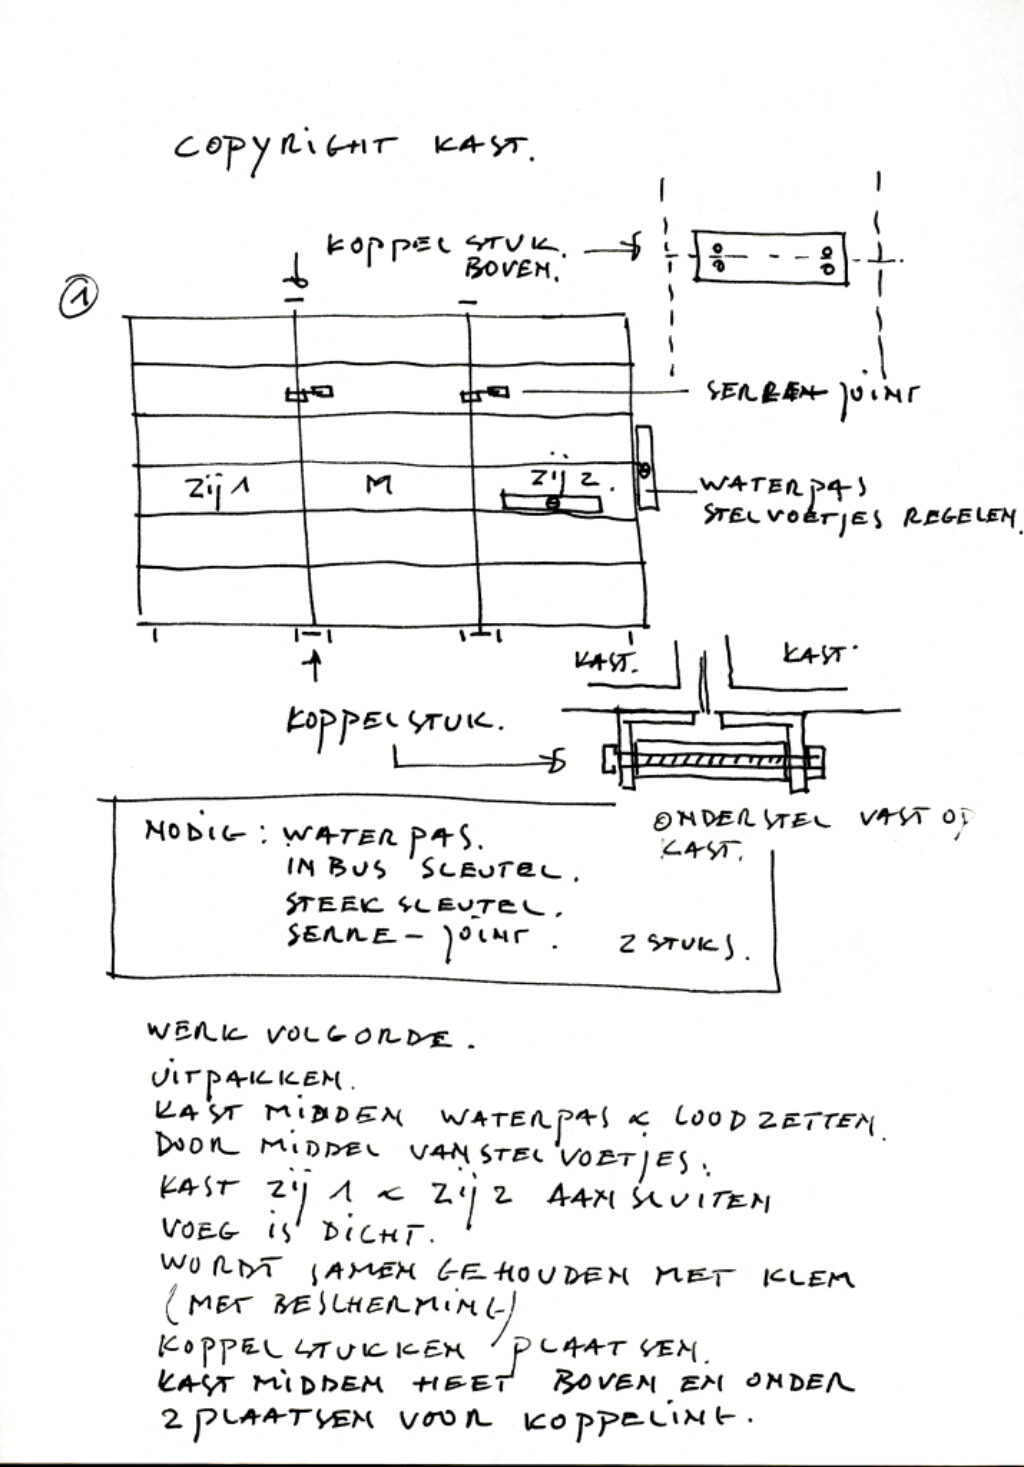 COPYRIGHT KAST.
KOPPELSTUK.
BOVEN.
1
SERREN JOINT
ZIJ 1
M
ZIJ 2.
WATERPAS
STELVOETJES REGELEN.
KAST.
KAST.
KOPPELSTUK.
ONDERSTEL VAST OP
KAST.
NODIG: WATERPAS.
INBUS SLEUTEL.
STEEK SLEUTEL.
SERRE-JOINT. 2 STUKS.
WERK VOLGORDE.
UITPAKKEN.
KAST MIDDEN WATERPAS & LOODZETTEN.
DOOR MIDDEL VAN STELVOETJES.
KAST ZIJ 1 & ZIJ 2 AANSLUITEN
VOEG IS DICHT.
WORDT SAMEN GEHOUDEN MET KLEM
(MET BESCHERMING)
KOPPELSTUKKEN PLAATSEN.
KAST MIDDEN HEET BOVEN EN ONDER
2 PLAATSEN VOOR KOPPELING.